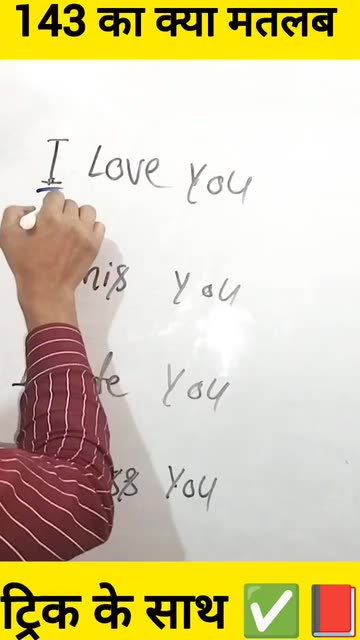 143 का क्या मतलब
I Love You
You
You
You
ट्रिक के साथ ✅📕